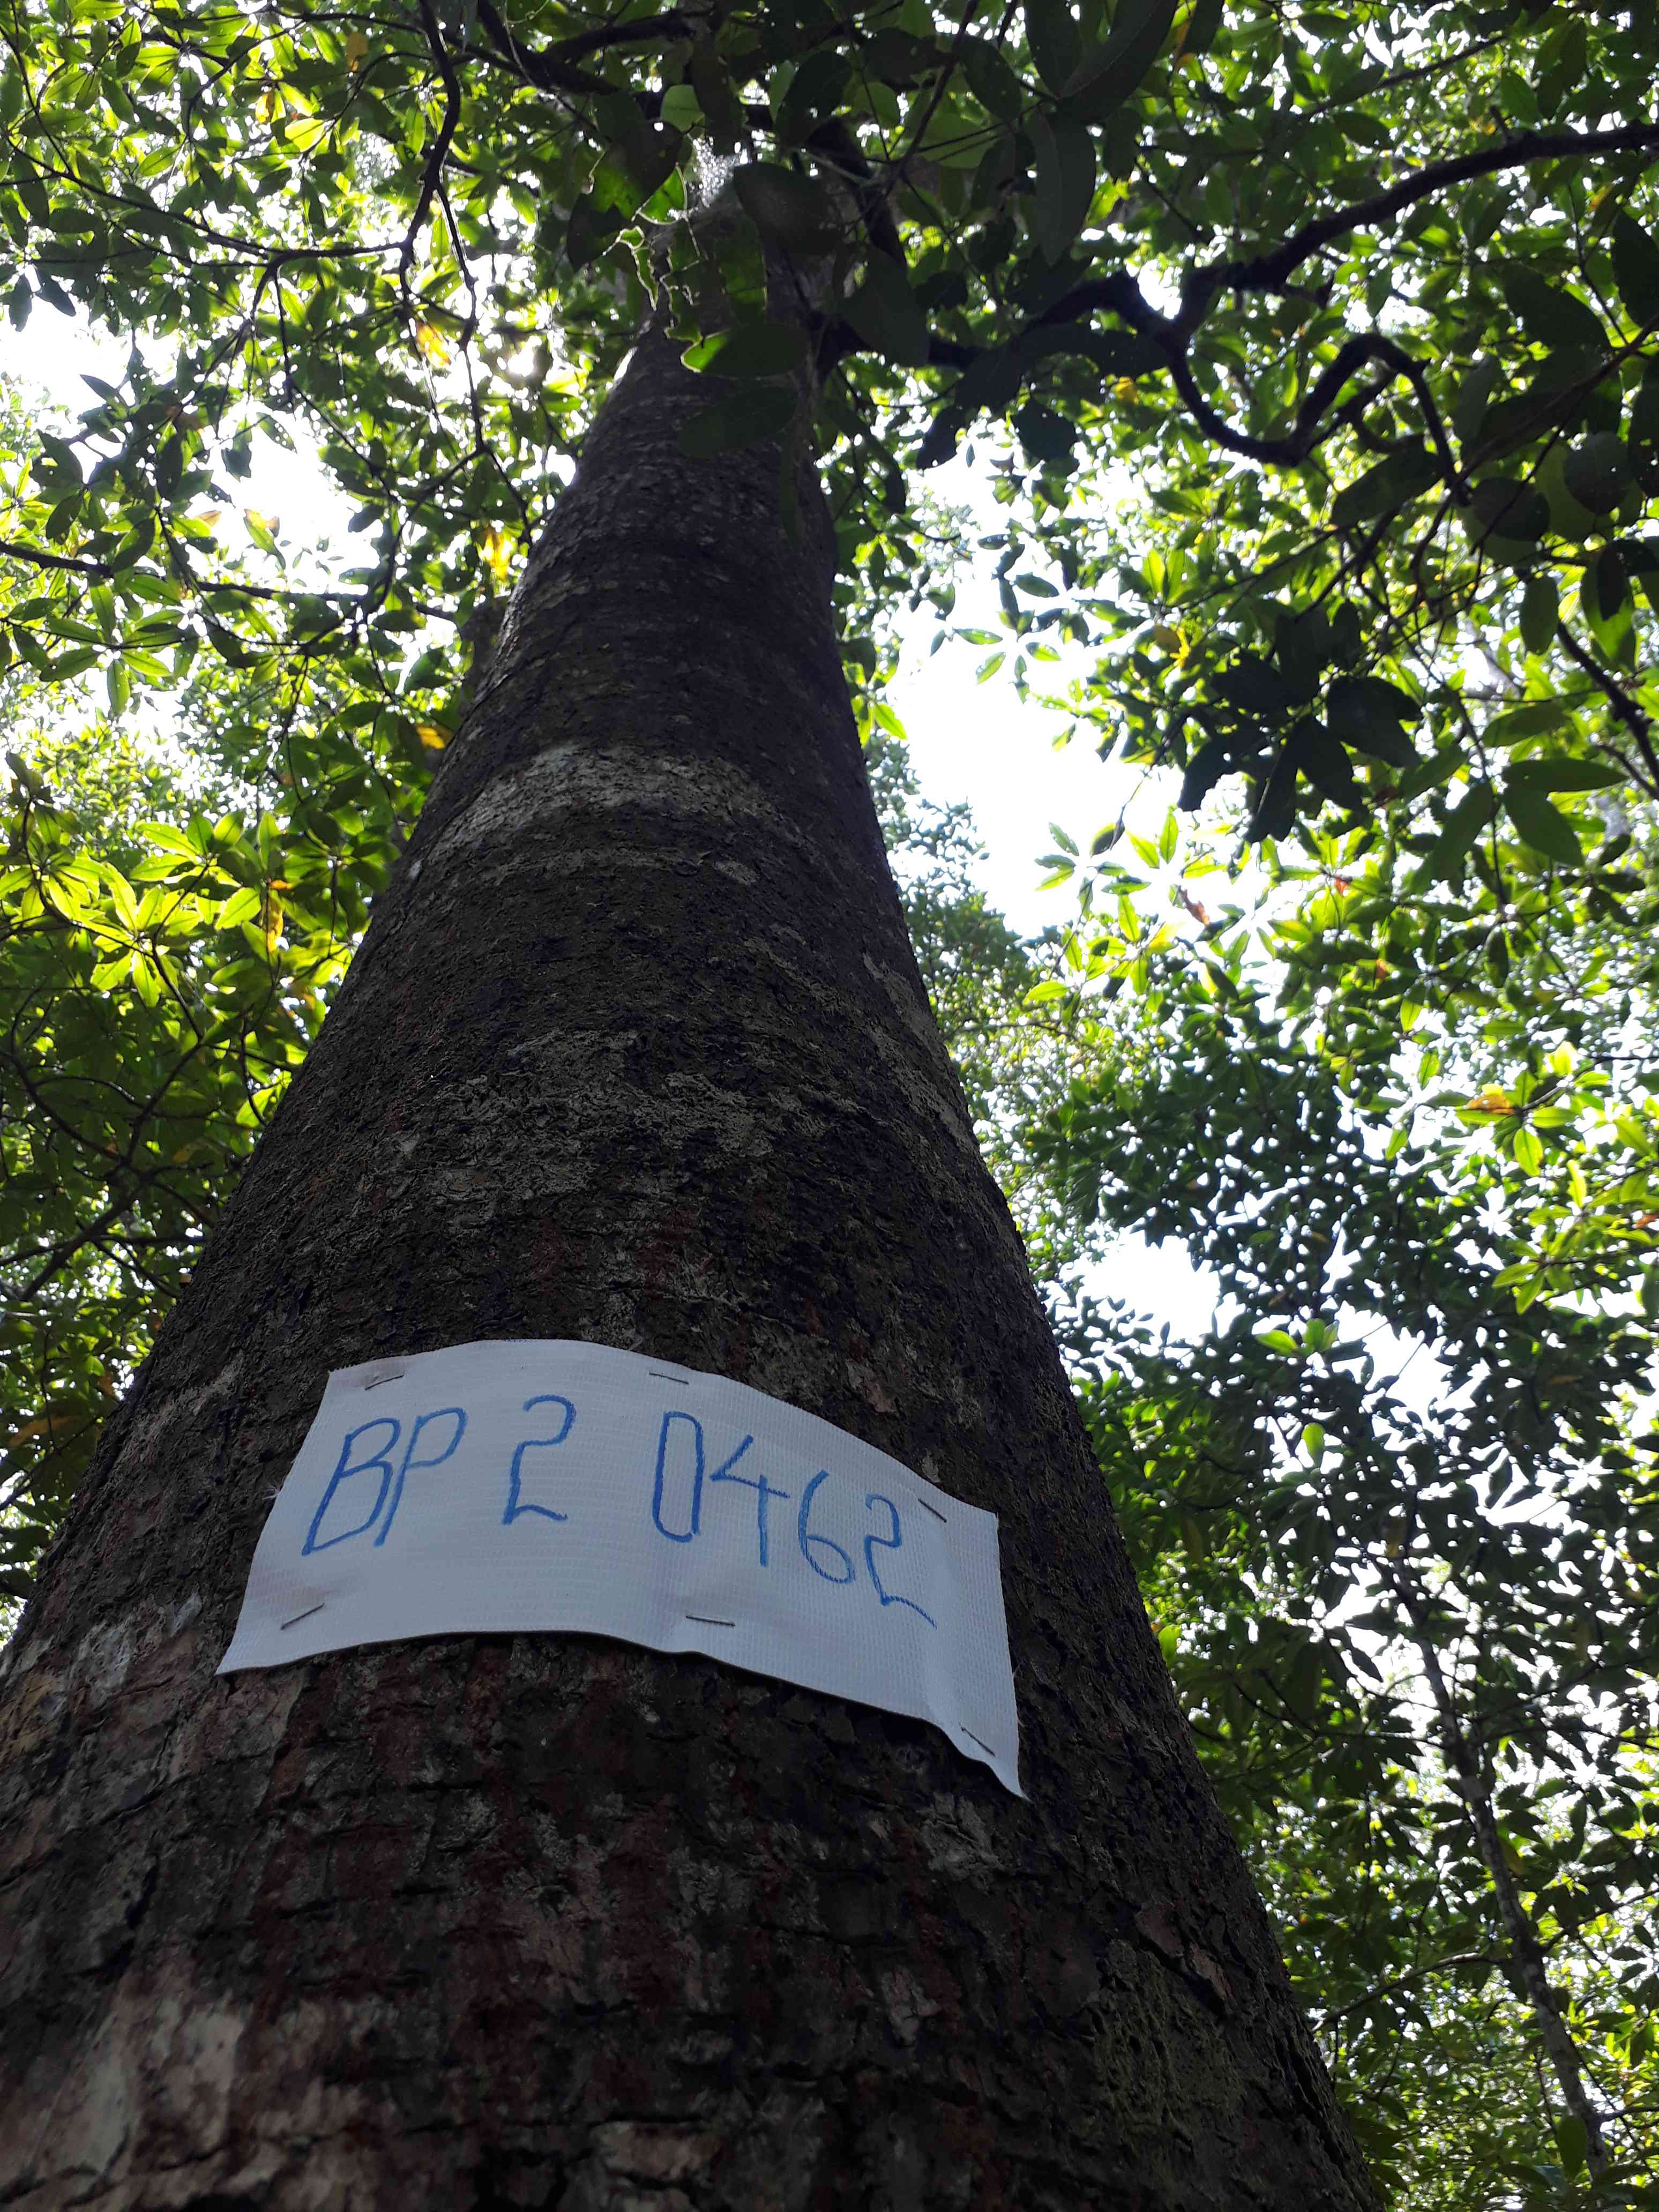 BP 2 0462